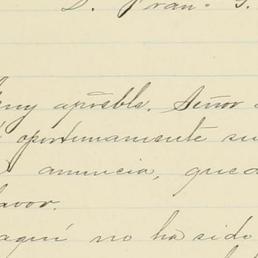 D. Fran.
uy apreble. Señor
oportunamente su
anuncia, qued
avor.
aquí no ha sido